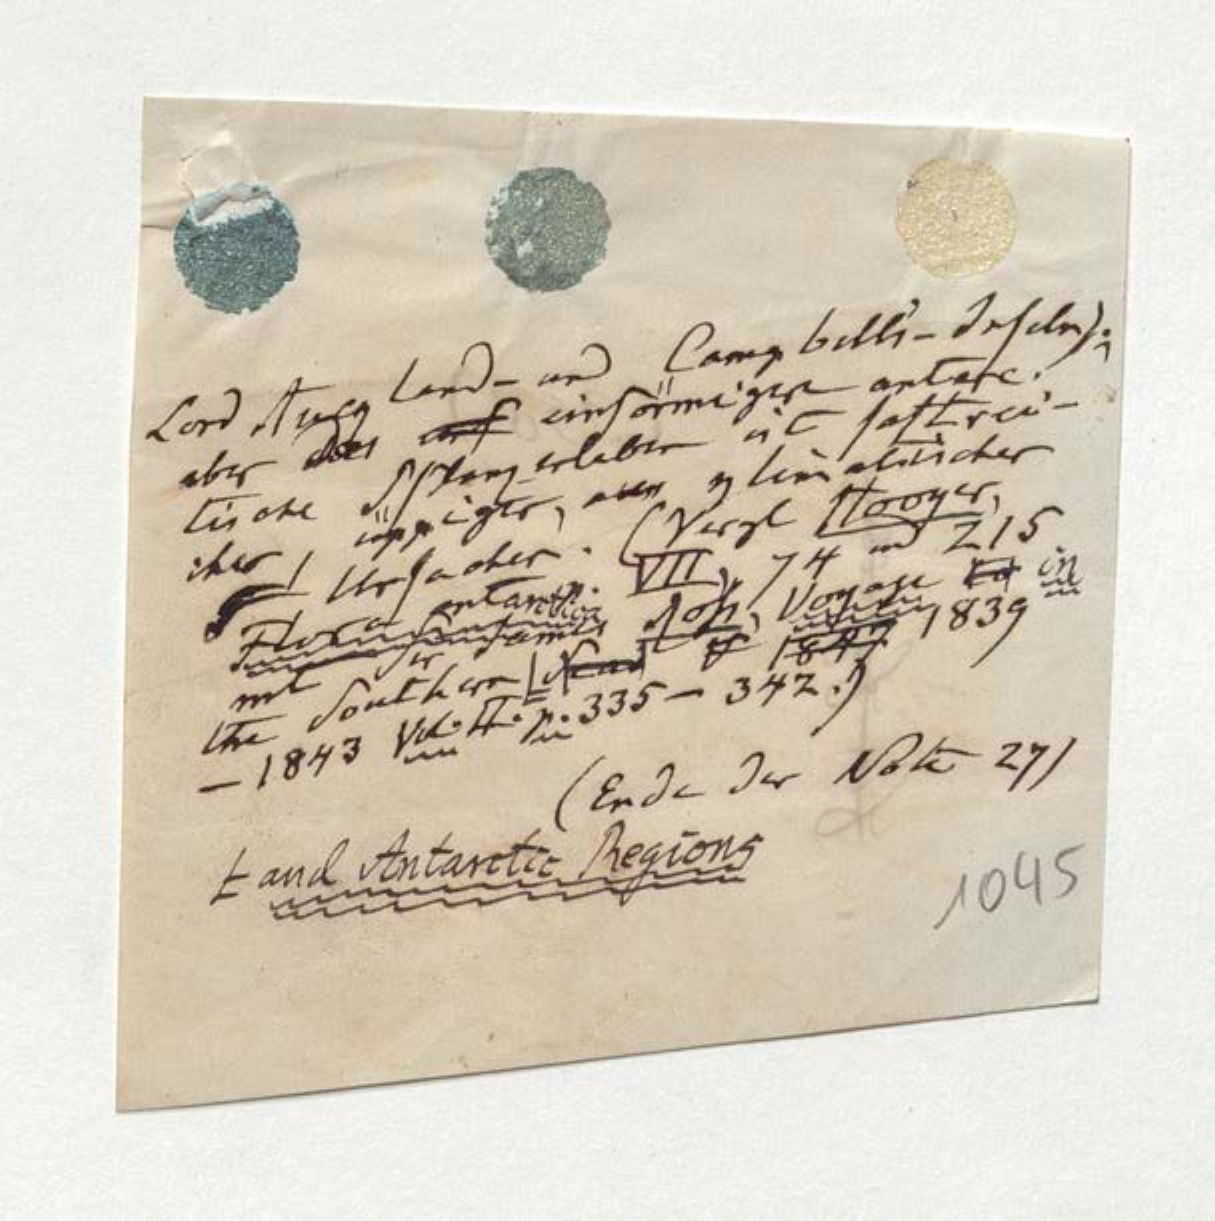 Lord Auckland- und Campbell's-Inseln);
aber das auf einförmigere antarc-
tische Pflanzenleben ist saftrei-
cher, üppiger, aus klimatischer
Ursachen. (Vergl Hooker,
Flora antarctica VII, 74 und 215
mit Sir James Ross, Voyage in
the Southern 1847 1839
– 1843 Vol. II. p. 335 – 342.)
(Ende der Note 27)
and Antarctic Regions
1045